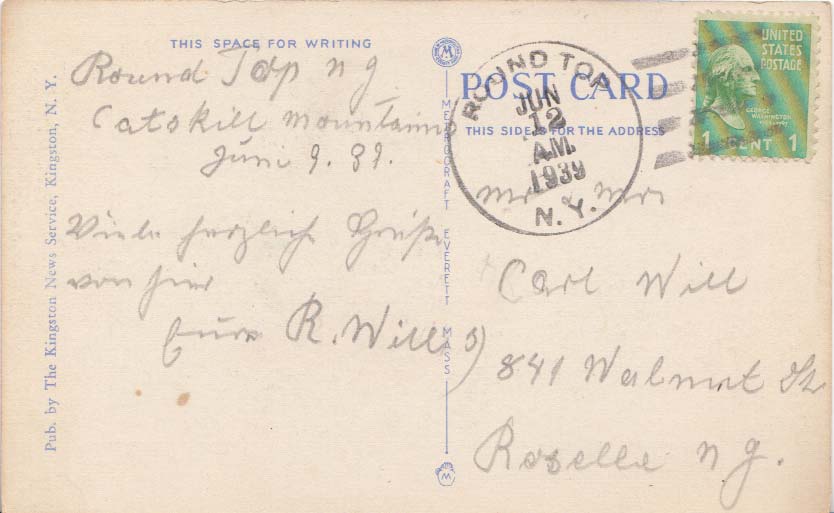 THIS SPACE FOR WRITING
Round Top N Y
Catskill Mountains
June 9. 39.
Viele herzliche Grüße
von hier
Eure R. Will
Pub. by The Kingston News Service, Kingston, N. Y.
METROCRAFT EVERETT MASS
POST CARD
THIS SIDE FOR THE ADDRESS
ROUND TOP
JUN
12
A.M.
1939
N.Y.
UNITED
STATES
POSTAGE
GEORGE
WASHINGTON
1 CENT 1
Mr & Mrs
Carl Will
841 Walnut St
Roselle N J.